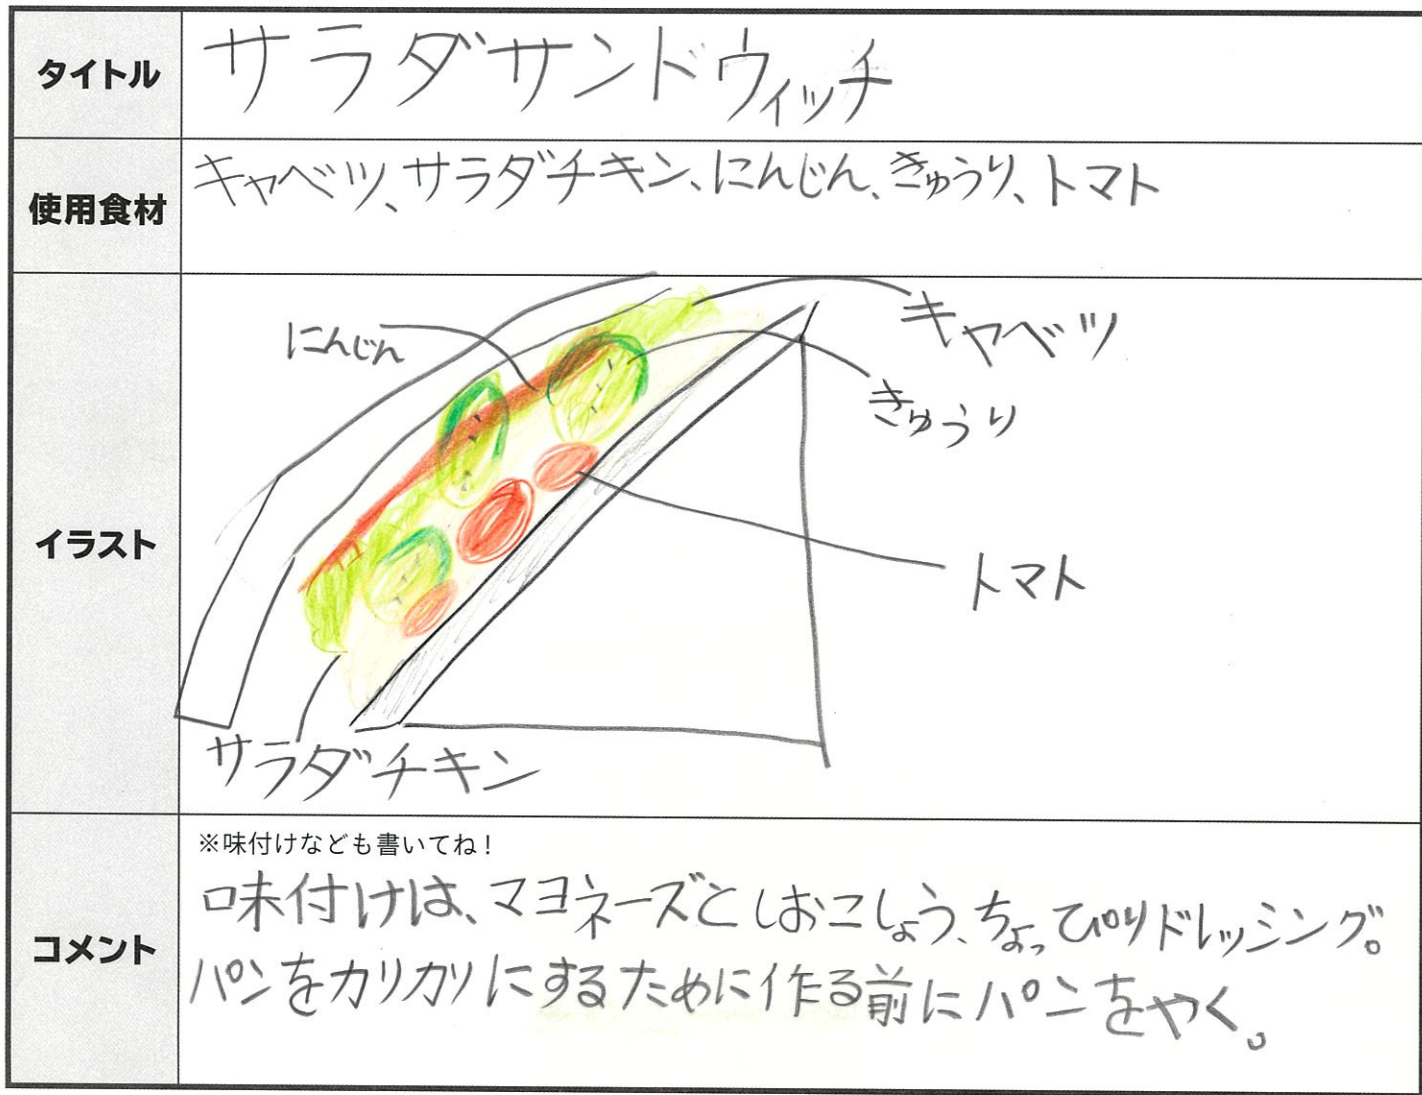 タイトル
サラダサンドウィッチ
使用食材
キャベツ、サラダチキン、にんじん、きゅうり、トマト
イラスト
にんじん
キャベツ
きゅうり
トマト
サラダチキン
コメント
※味付けなども書いてね!
味付けは、マヨネーズとしおこしょう、ちょっぴりドレッシング。
パンをカリカリにするために作る前にパンをやく。